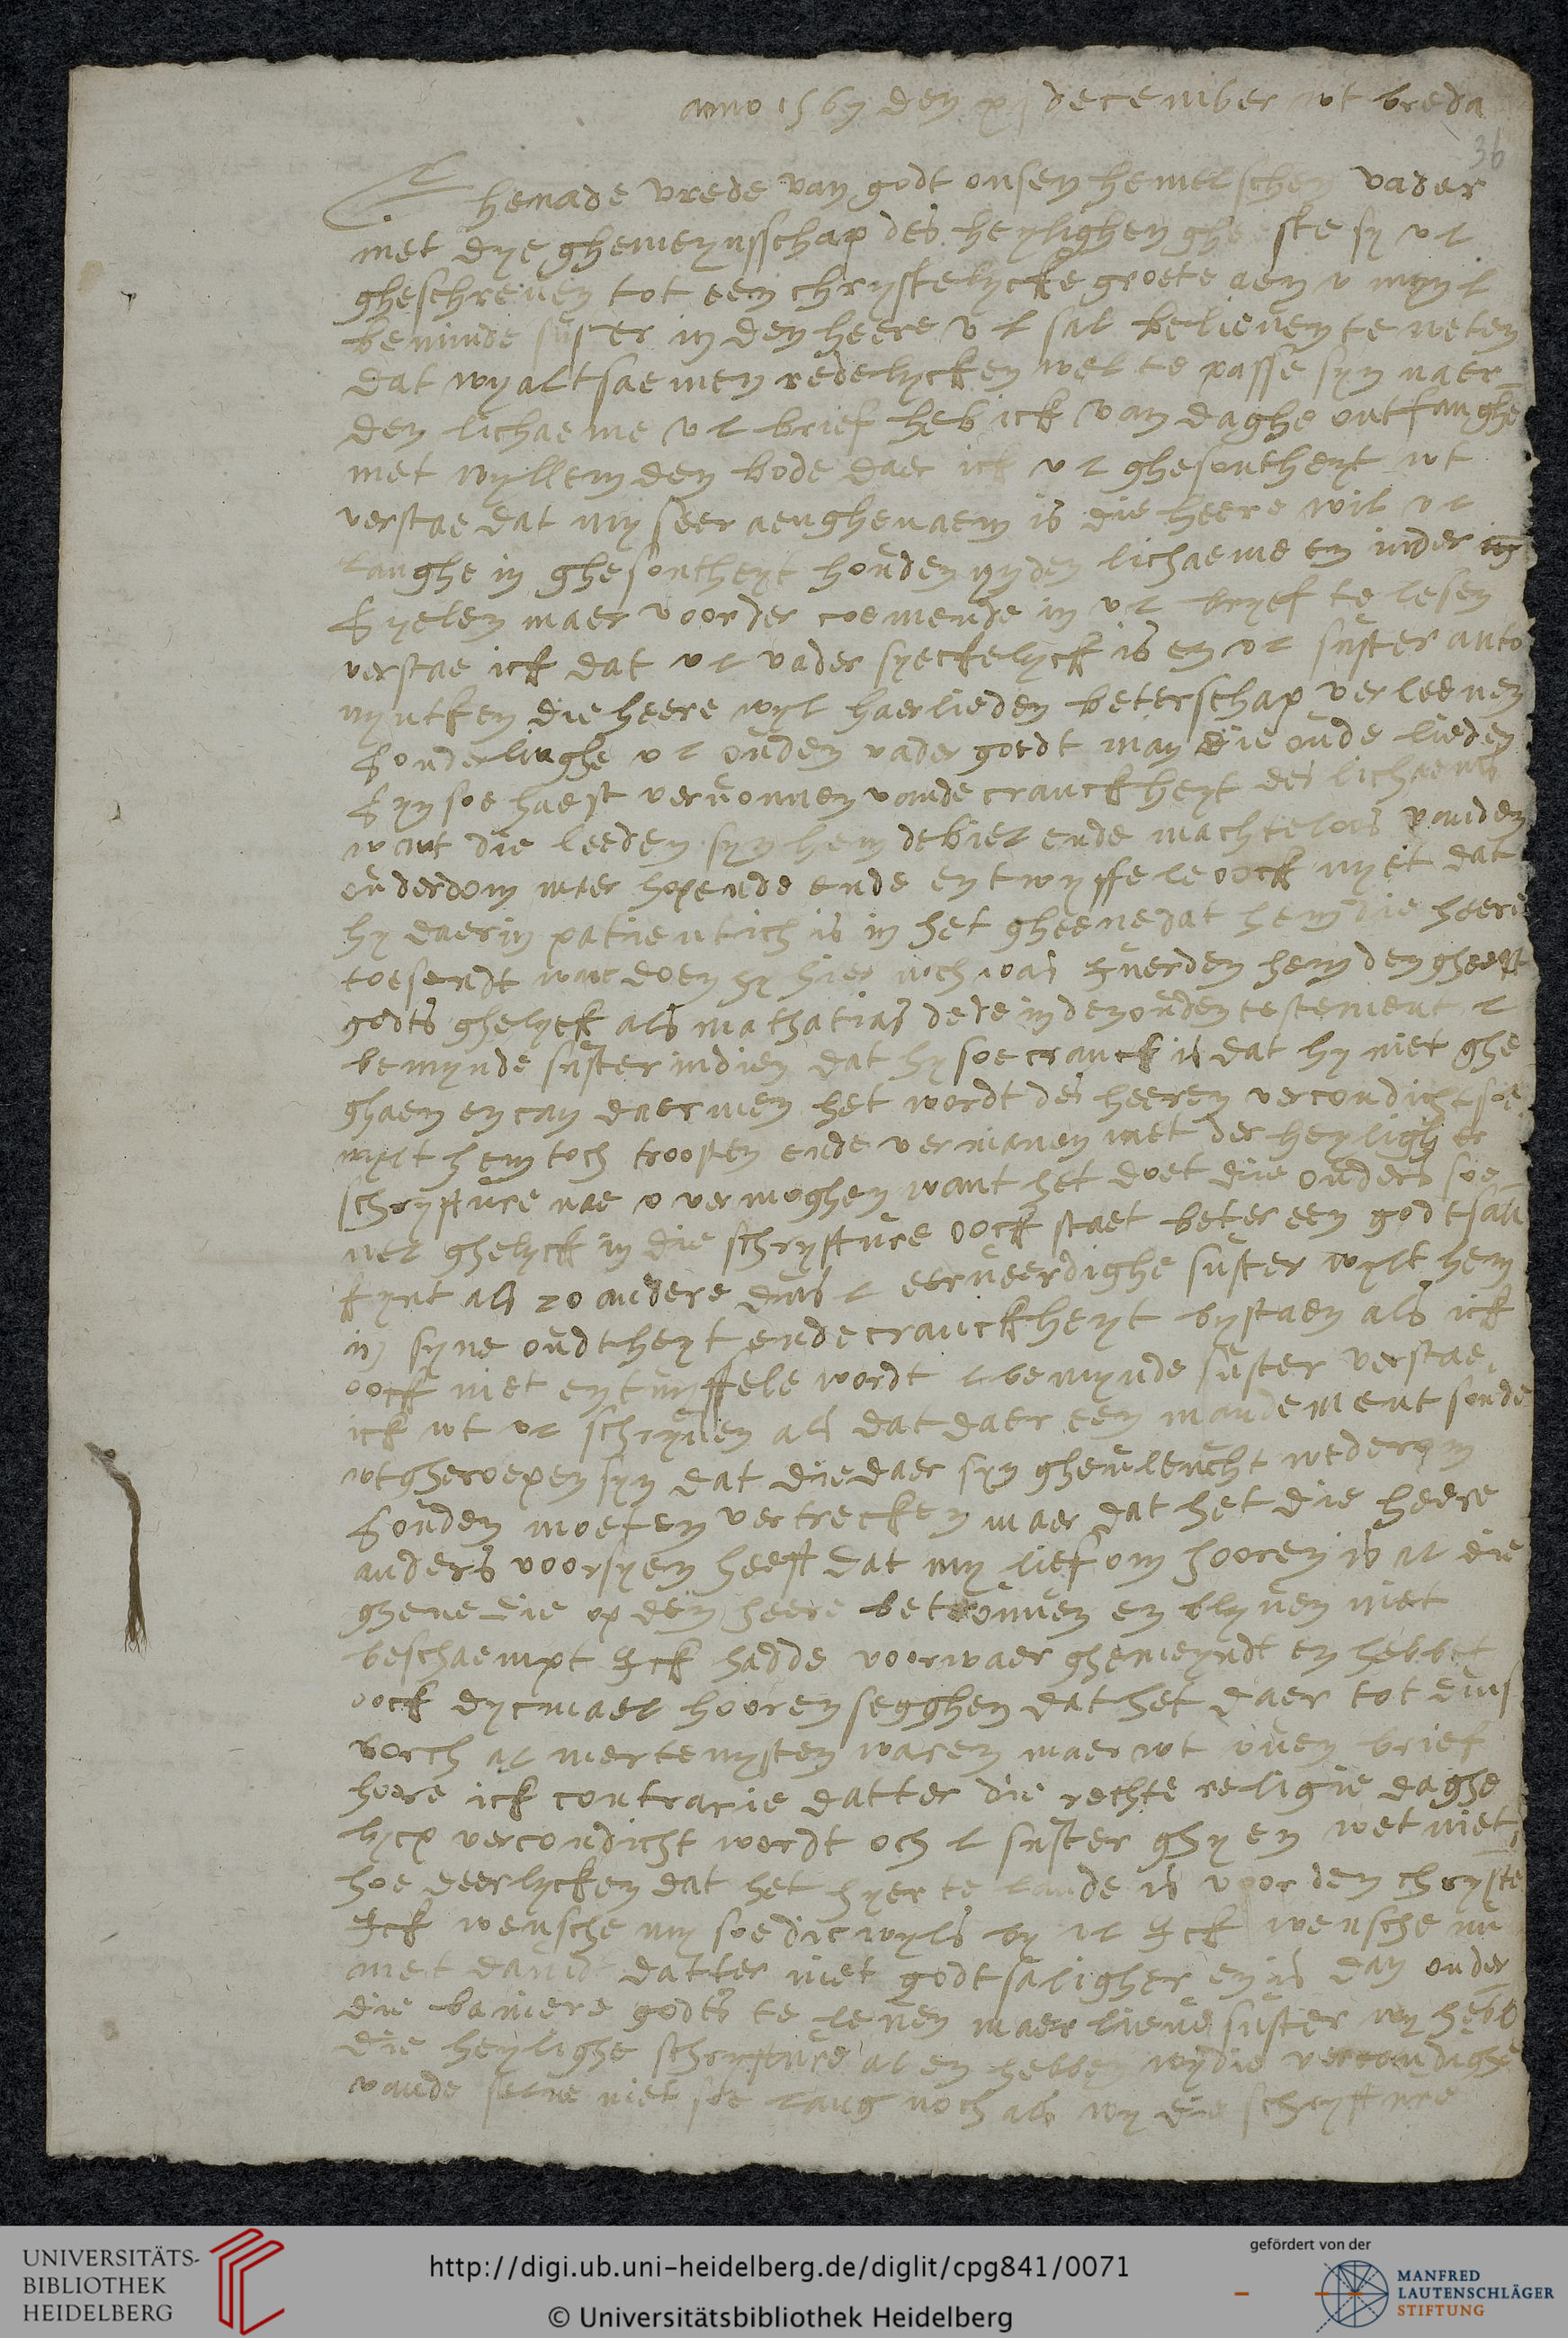 anno 1567 den xij december wt breda
36
Ghenade vrede van godt onsen hemelschen vader
met dye ghemeynsschap des heylighen gheeste sy v l
gheschreven tot een chrystelycke groete aen v myn l
beminde suster in den heere v l sal believen te weten
dat wy altsaemen redelycken wel te passe syn naer
den lichaeme v l brief heb ick van daghe ontfanghe
met wyllem den bode daer ick v l ghesontheyt wt
verstae dat my seer aenghenaem is die heere wil v l
langhe in ghesontheyt houden nyden lichaeme en inder
Syelen maer voorder coemende in v l bryef te lesen
verstae ick dat v l vader syeckelyck is en v l suster anto
nyntken die heere wyl haerlieden beterschap verleenen
Sonderlinghe v l ouden vader goedt man die oude lieden
Syn soe haest verwonnen vande cranckheyt des lichaems
want die leeden syn hem debiel ende machteloos vanden
ouderdom meer hopende ende en twyffele oock nyet dat
hy daer in patientich is in het gheene dat hem die heere
toesendt want doen hy hier noch was Iverden hem den gheest
godts ghelyck als mathatias dede in den ouden testement l
bemynde suster indien dat hy soe cranck is dat hy niet ghe
ghaen en can daer men het wordt des heeren vercondicht soe
wylt hem toch troosten ende vermanen met der heyligher
schryfture nae v vermoghen want het doet die ouders soe
wel ghelyck in die schryfture oock staet beter een godtsali
kynt als 20 andere dus l eerweerdighe suster wylt hem
in syne oudtheyt ende cranckheyt bystaen als ick
oock niet en twyffele wordt l bemynde suster verstae
ick wt v l schryven als dat daer een mandement soude
wtgheroepen syn dat die daer syn ghevlucht wederom
Souden moeten vertrecken maer dat het die heere
anders voorsyen heeft dat my lief om hooren is al die
ghene die op den heere betrouwen en blyven niet
beschaempt Ick hadde voorwaer ghemeyndt en hebbet
oock dycmael hooren segghen dat het daer tot duis
borch al mertenysten waren maer wt uwen brief
hoore ick contrarie datter die rechte religie daghe
lycx vercondicht wordt och l suster ghy en wet niet
hoe deerlycken dat het hyer te lande is voor den chryste
Ick wensche my soe dicwyls by v l Ick wensche nu
met david datter niet godtsaligher en is dan onder
die baniere godts te leven maer lieve suster wy hebb
die heylighe schryfture al en hebben wy die vercondighe
vande selve niet soe lang noch als wy die schryfture
UNIVERSITÄTS-
BIBLIOTHEK
HEIDELBERG
http://digi.ub.uni-heidelberg.de/diglit/cpg841/0071
© Universitätsbibliothek Heidelberg
gefördert von der
MANFRED
LAUTENSCHLÄGER
STIFTUNG